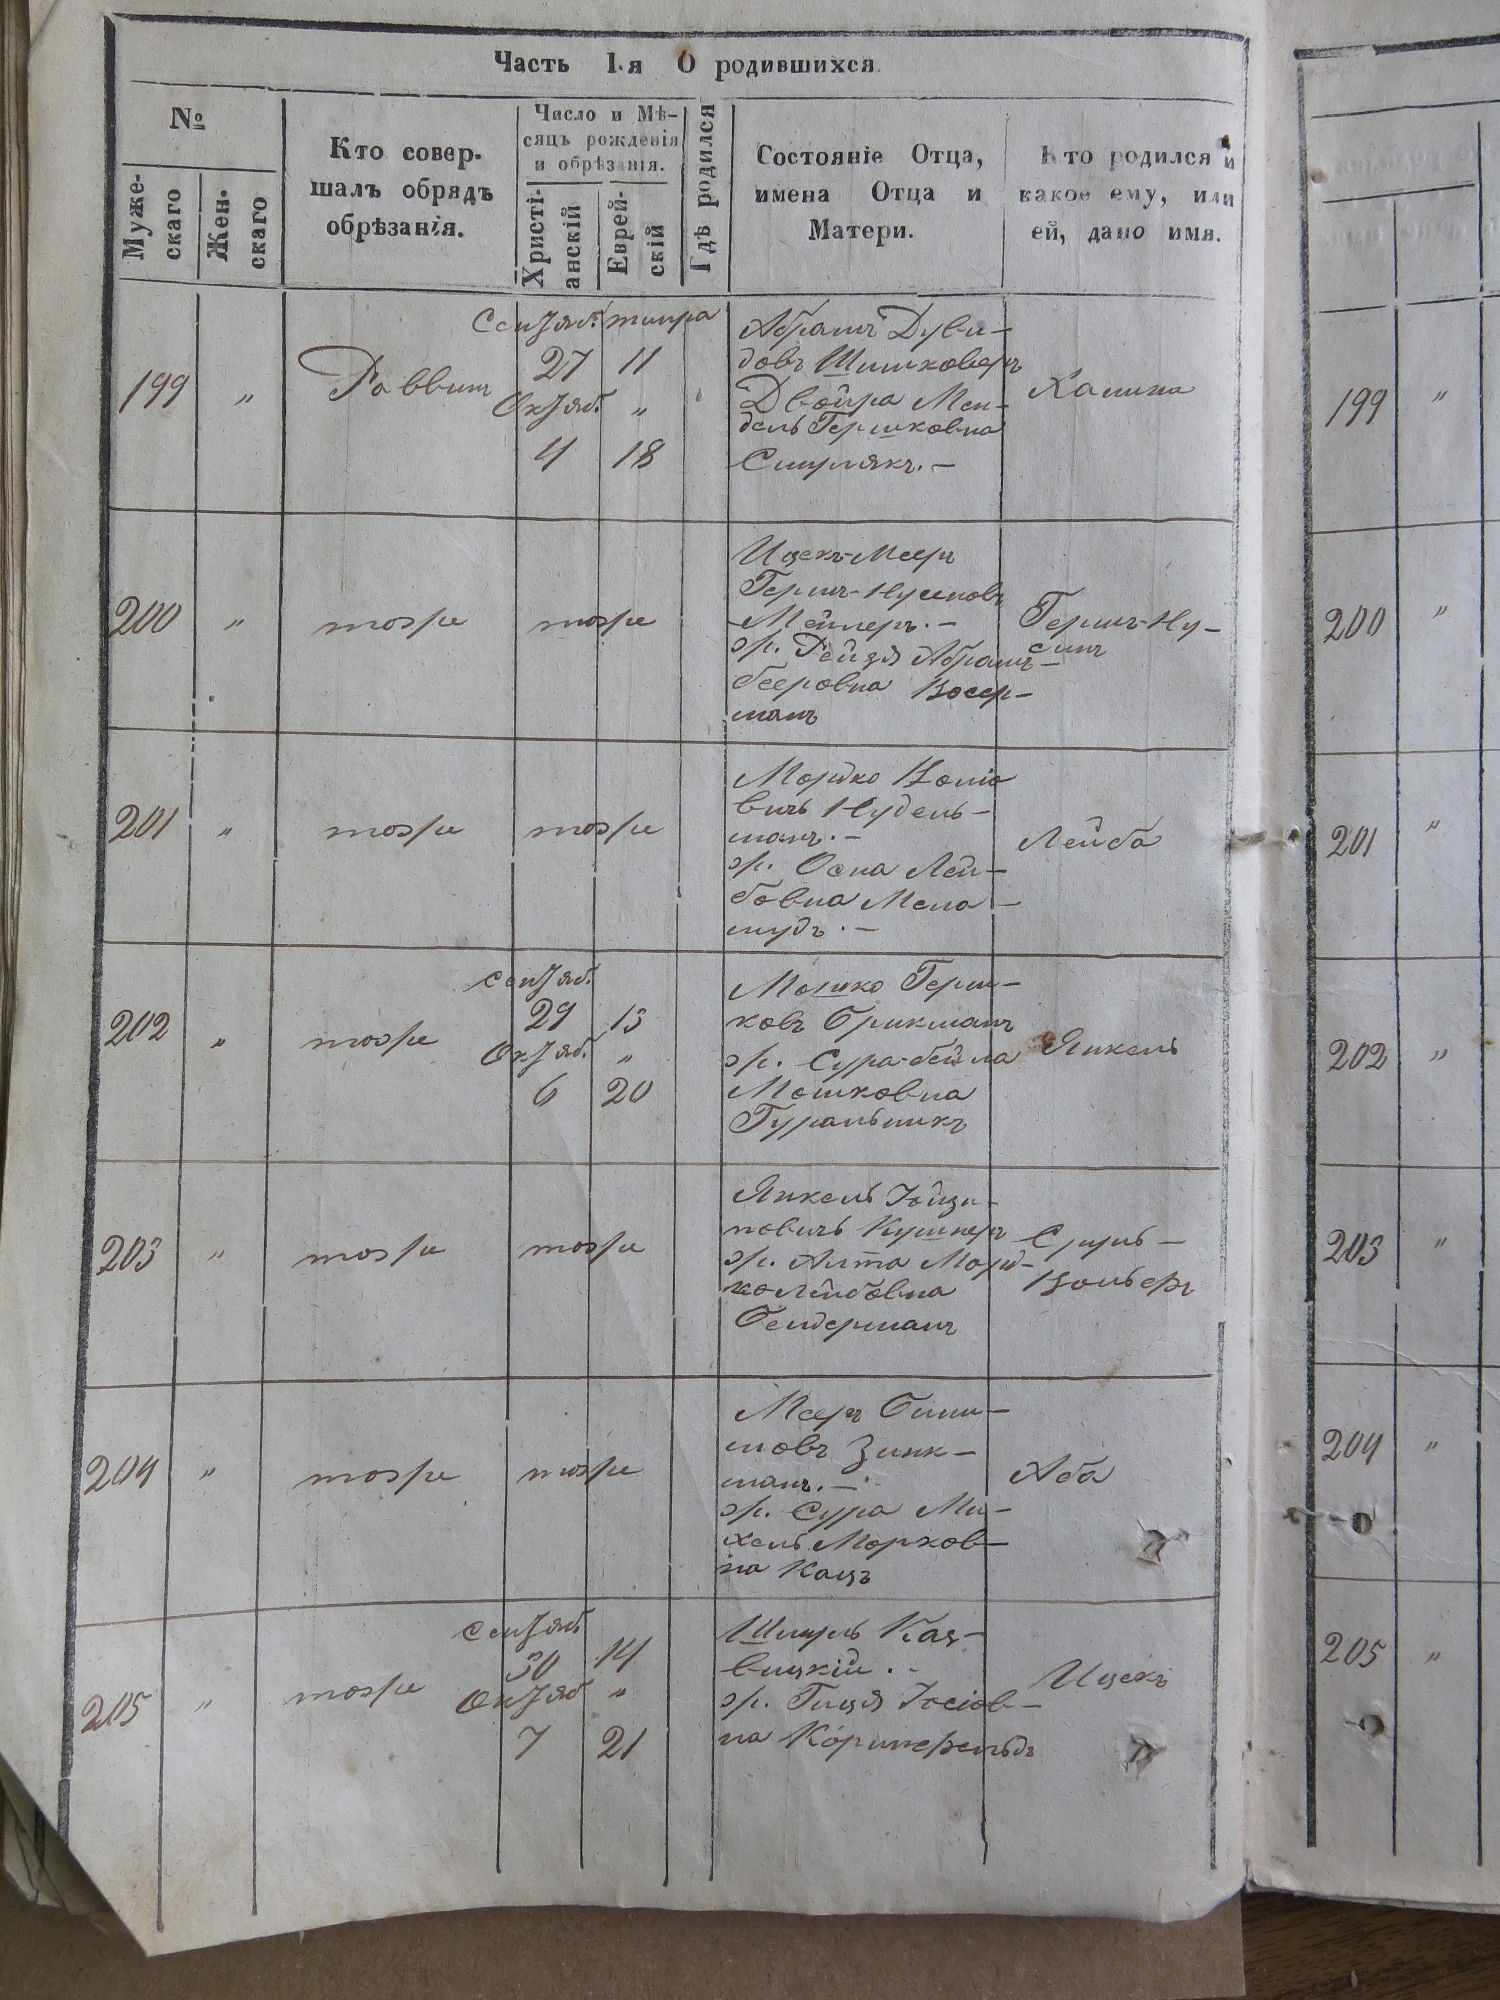 Часть 1.я О родившихся.
№
Муже-
скаго
Жен.
скаго
Кто совер-
шалъ обрядъ
обрѣзанія.
Число и Мѣ-
сяцъ рожденія
и обрѣзанія.
Христі-
анскій
Еврей-
скій
Гдѣ родился
Состояніе Отца,
имена Отца и
Матери.
Кто родился и
какое ему, или
ей, дано имя.
199 "
Раввинъ
Сентяб. тишра
27 11
Октяб. "
4 18
Абрамъ Дуви-
довъ Шишковеръ
Двойра Мен-
дель Гершковна
Смулякъ. —
Хаимъ
200 " тоже тоже
Ицекъ-Мееръ
Гершъ-Нусиновъ
Мейлеръ. —
эр. Рейзя Абрамъ-
бееровна Восер-
манъ
Гершъ-Ну-
синъ
201 " тоже тоже
Мордко
вичъ Нудель-
манъ. —
эр. Осна Лей-
бовна Мела-
мудъ. —
Лейба
202 " тоже
Сентяб.
29 13
Октяб. "
6 20
Мошко Герш-
ковъ Брикманъ
эр. Сура-бейла
Мошковна
Гуральникъ
Янкель
203 " тоже тоже
Янкель
новичъ Кушнеръ
эр. Алта Морд-
ко Лейбовна
Бендерманъ
Сруль-
Вольфъ
204 " тоже тоже
Мееръ
мовъ Зинк-
манъ. —
эр. Сура Ми-
хель Морков-
на Кацъ
Аба
205 " тоже
Сентяб
30 14
Октяб "
7 21
Шмуль Каз-
вицкій. -
эр. Гиця Іосіов-
на Коринфельдъ
Ицекъ
199 "
200 "
201 "
202 "
203 "
204 "
205 "